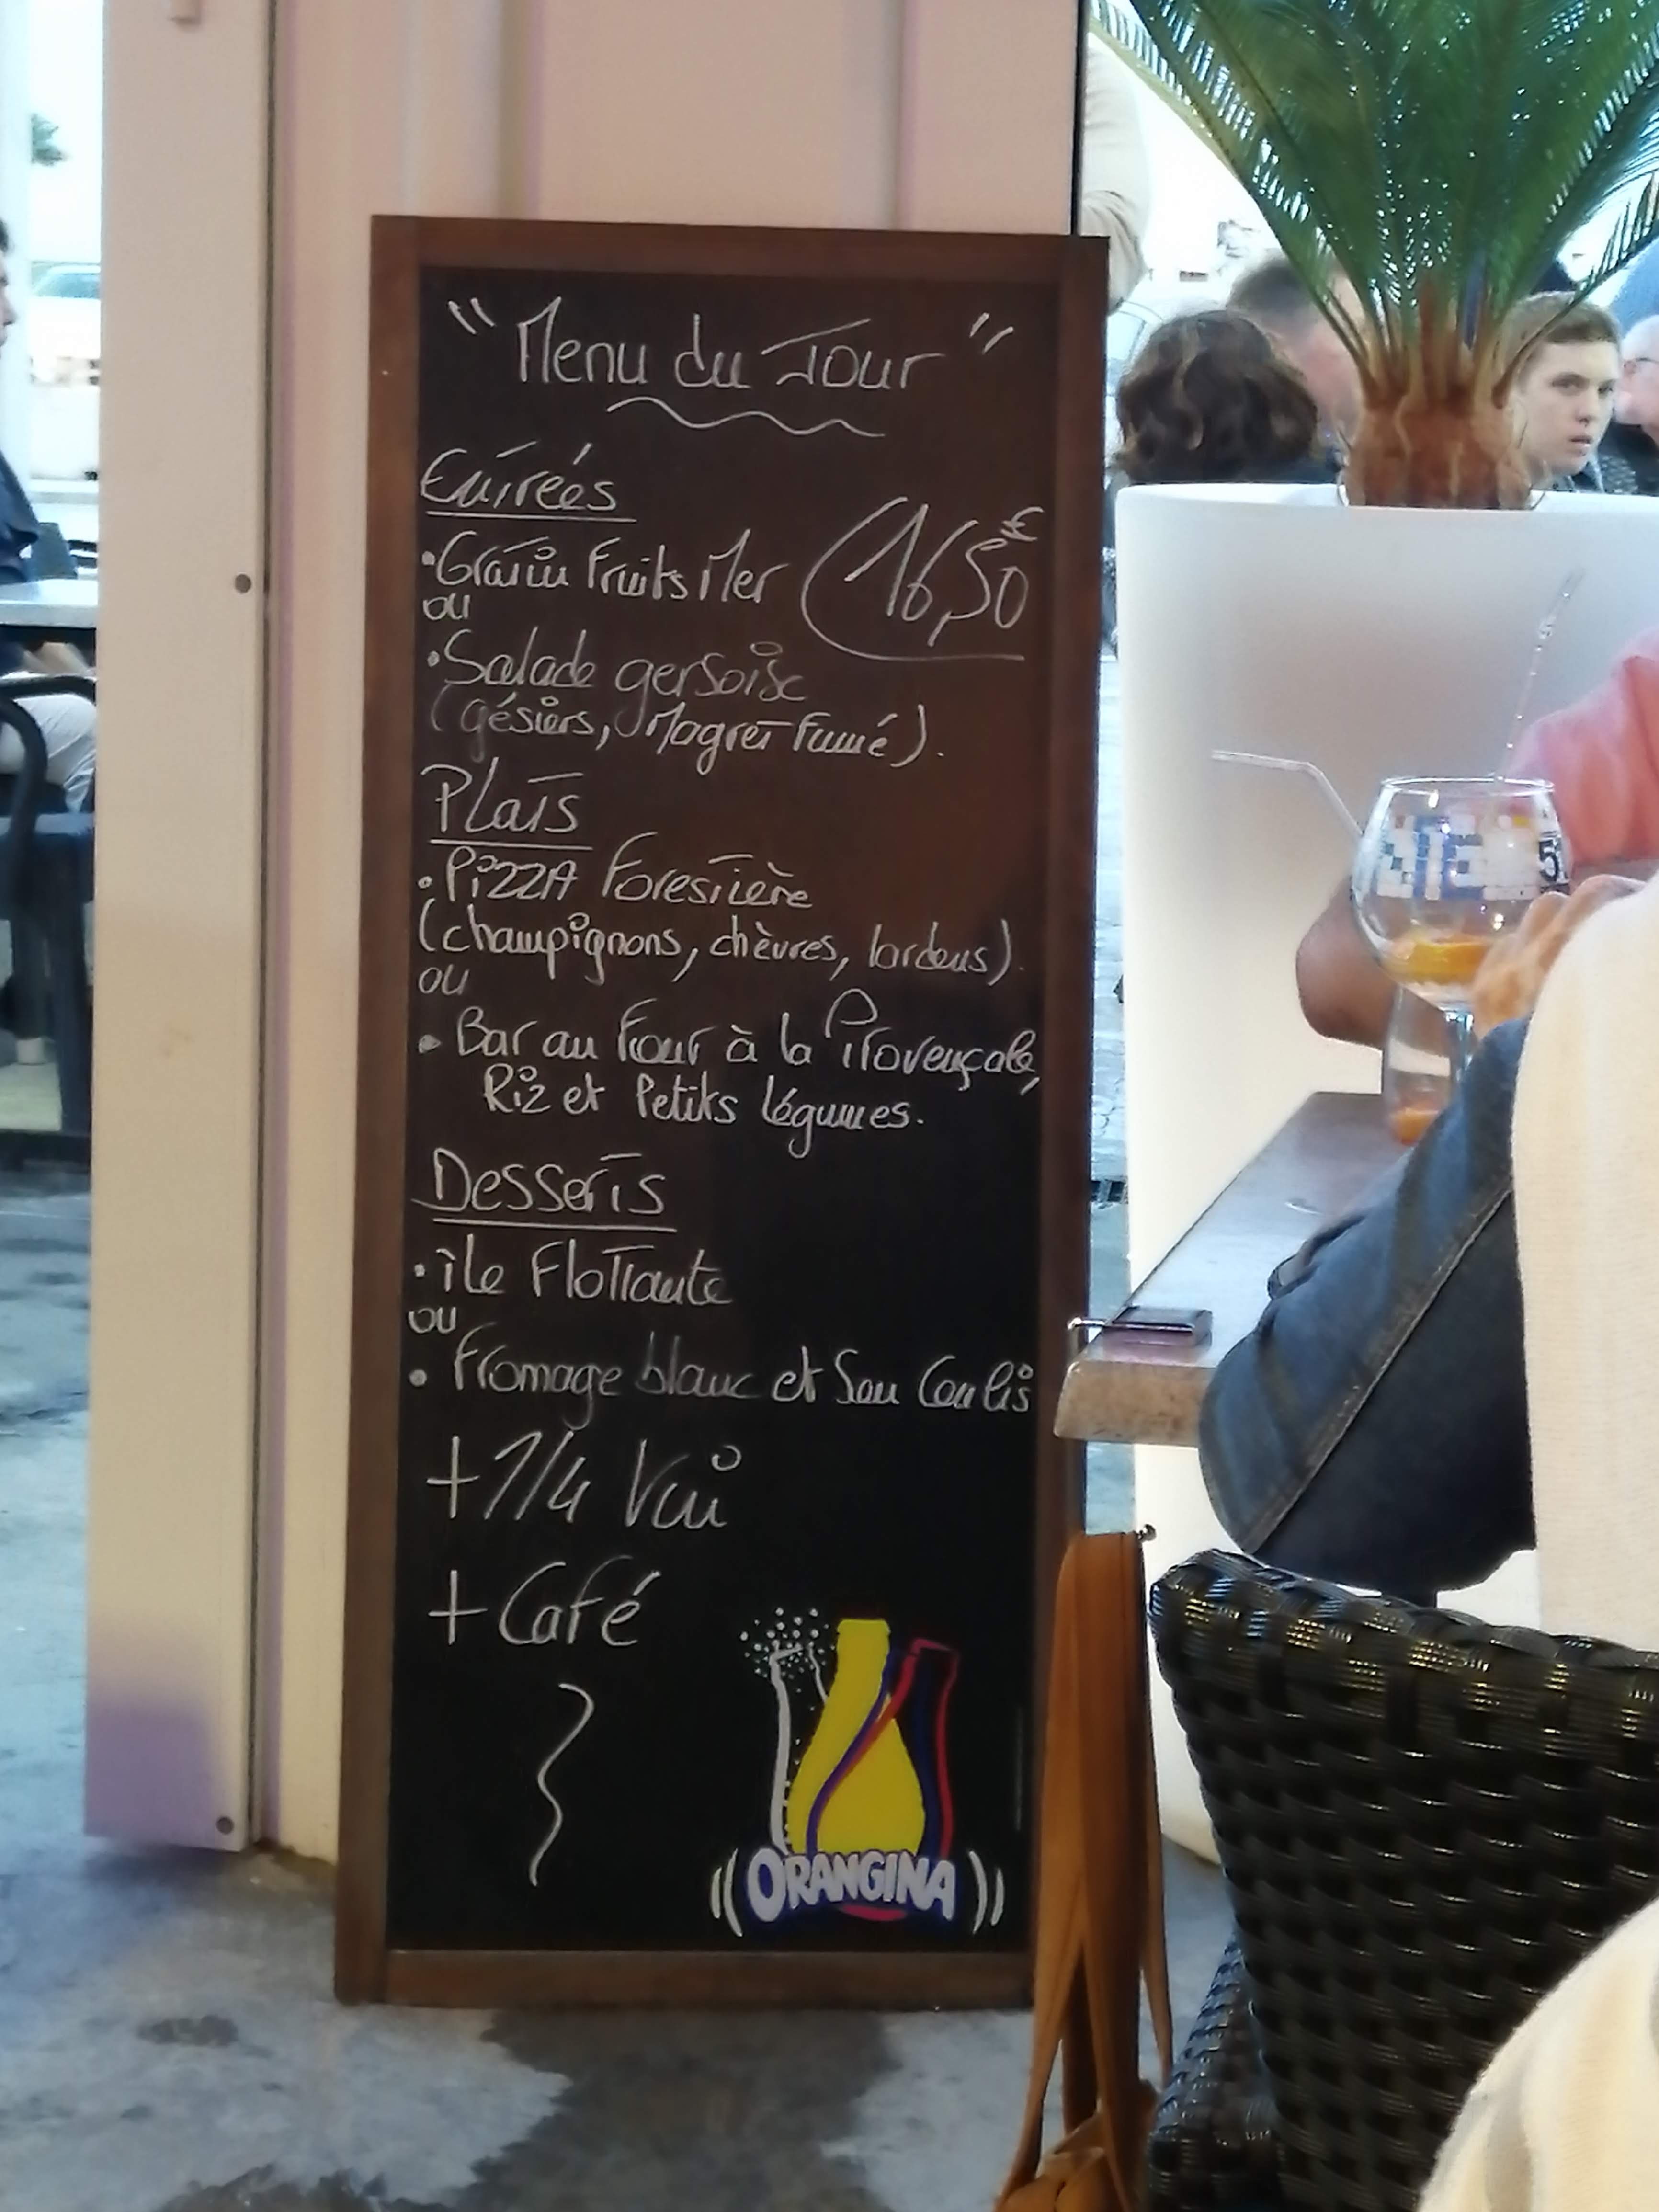 "Menu du Jour"
Entrées
16,50€
• Gratin Fruits Mer
ou
• Salade gersoise
(gésiers, Magret Fumé).
Plats
• PizzA Forestière
(champignons, chèvres, lardons).
ou
• Bar au Four à la Provençale,
Riz et Petits légumes.
Desserts
• île Flottante
ou
• Fromage blanc et Son Coulis
+ 1/4 Vin
+ Café
ORANGINA